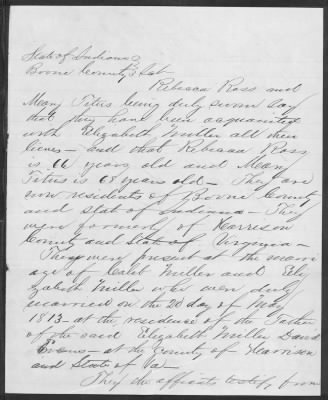 State of Indiana
Boone County Sct
Rebecca Ross and
Mary Titus being duly sworn say
that they have been acquainted
with Elizabeth Miller all their
lives - and that Rebecca Ross
is 66 years old and Mary
Titus is 65 years old - They are
now residents of Boone County
and State of Indiana - They
were formerly of Harrison
County and State of Virginia -
They were present at the marri
age of Caleb Miller and Eli
zabeth Miller who were duly
married on the 20 day of May
1813 - at the residence of the Father
of the said Elizabeth Miller David
Evans - at the County of Harrison
and State of Va -
They the affiants testify from